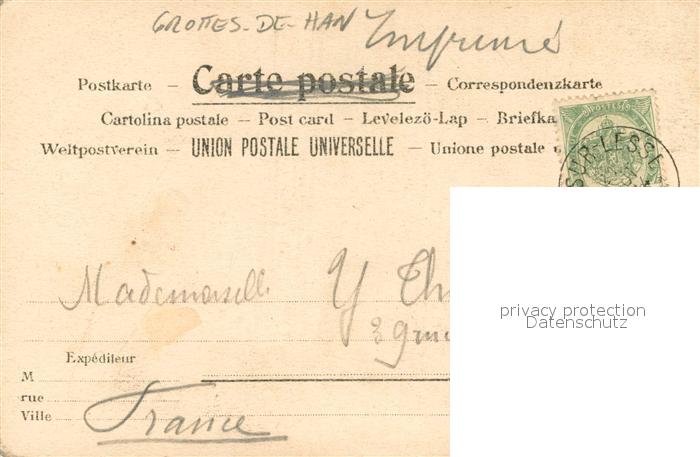 GROTTES-DE-HAN Imprimé
Postkarte – Carte postale – Correspondenzkarte
Cartolina postale – Post card – Levelezö-Lap – Briefka
Weltpostverein – UNION POSTALE UNIVERSELLE – Unione postale
POSTES
SUR-LESSE
privacy protection
Datenschutz
Mademoiselle Y Th
3
Expéditeur
M
rue
Ville
France